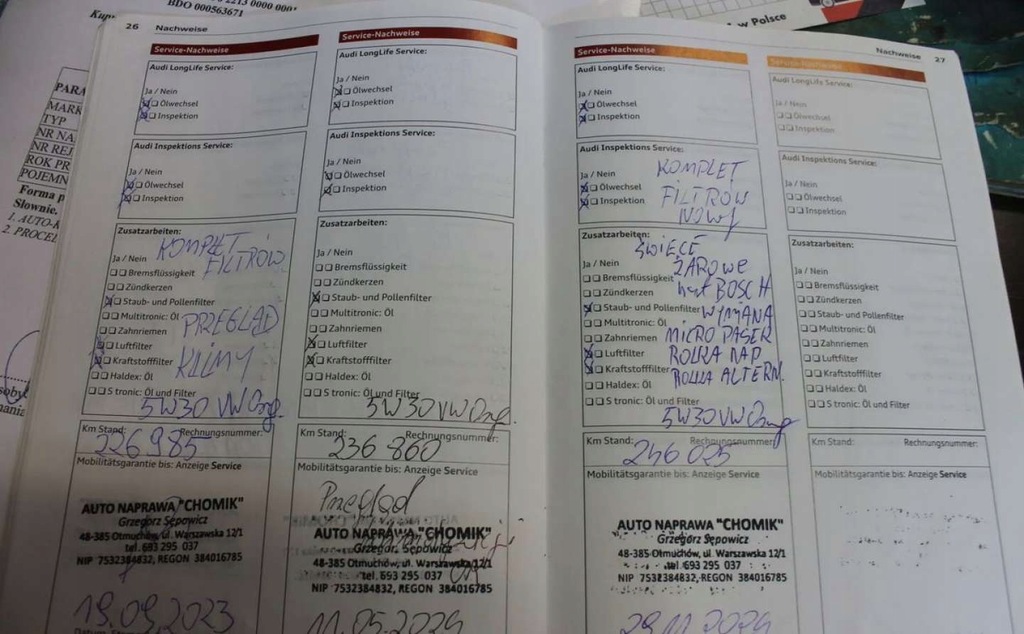 2213 0000 000
BDO 000563671
w Polsce
PARA
MARK
TYP
NR NA
NR REJ
ROK PR
POJEMN
Forma p
Słownie.
1. AUTO-K
2. PROCEL
26 Nachweise
Service-Nachweise
Audi LongLife Service:
Ja / Nein
Ölwechsel
Inspektion
Audi Inspektions Service:
Ja / Nein
Ölwechsel
Inspektion
Zusatzarbeiten:
KOMPLET
FILTRÓW
Ja / Nein
Bremsflüssigkeit
Zündkerzen
Staub- und Pollenfilter
Multitronic: Öl
PRZEGLĄD
Zahnriemen
Luftfilter
Kraftstofffilter
KLIMY
Haldex: Öl
S tronic: Öl und Filter
5W30 VW Org.
Km Stand: Rechnungsnummer:
226985
Mobilitätsgarantie bis: Anzeige Service
AUTO NAPRAWA "CHOMIK"
Grzegorz Sępowicz
48-385 Otmuchów, ul. Warszawska 12/1
tel. 693 295 037
NIP 7532384832, REGON 384016785
19.09.2023
Service-Nachweise
Audi LongLife Service:
Ja / Nein
Ölwechsel
Inspektion
Audi Inspektions Service:
Ja / Nein
Ölwechsel
Inspektion
Zusatzarbeiten:
Ja / Nein
Bremsflüssigkeit
Zündkerzen
Staub- und Pollenfilter
Multitronic: Öl
Zahnriemen
Luftfilter
Kraftstofffilter
Haldex: Öl
S tronic: Öl und Filter
5W30 VW Org.
Km Stand: Rechnungsnummer:
236 860
Mobilitätsgarantie bis: Anzeige Service
Przegląd
AUTO NAPRAWA "CHOMIK"
Grzegorz Sępowicz
48-385 Otmuchów, ul. Warszawska 12/1
tel. 693 295 037
NIP 7532384832, REGON 384016785
11.05.2024
Nachweise 27
Service-Nachweise
Audi LongLife Service:
Ja / Nein
Ölwechsel
Inspektion
Audi Inspektions Service:
KOMPLET
Ja / Nein
Ölwechsel
FILTRÓW
Inspektion
NOWY
Zusatzarbeiten:
ŚWIECE
Ja / Nein
ŻAROWE
Bremsflüssigkeit
BOSCH
Zündkerzen
Staub- und Pollenfilter
WYMIANA
Multitronic: Öl
Zahnriemen
MICRO PASEK
Luftfilter
ROLKA NAP
Kraftstofffilter
ROLKA ALTERN.
Haldex: Öl
S tronic: Öl und Filter
5W30 VW Org
Km Stand: Rechnungsnummer:
246 025
Mobilitätsgarantie bis: Anzeige Service
AUTO NAPRAWA "CHOMIK"
Grzegorz Sępowicz
48-385 Otmuchów, ul. Warszawska 12/1
tel. 693 295 037
NIP 7532384832, REGON 384016785
29.11.2024
Service-Nachweise
Audi LongLife Service:
Ja / Nein
Ölwechsel
Inspektion
Audi Inspektions Service:
Ja / Nein
Ölwechsel
Inspektion
Zusatzarbeiten:
Ja / Nein
Bremsflüssigkeit
Zündkerzen
Staub- und Pollenfilter
Multitronic: Öl
Zahnriemen
Luftfilter
Kraftstofffilter
Haldex: Öl
S tronic: Öl und Filter
Km Stand: Rechnungsnummer:
Mobilitätsgarantie bis: Anzeige Service